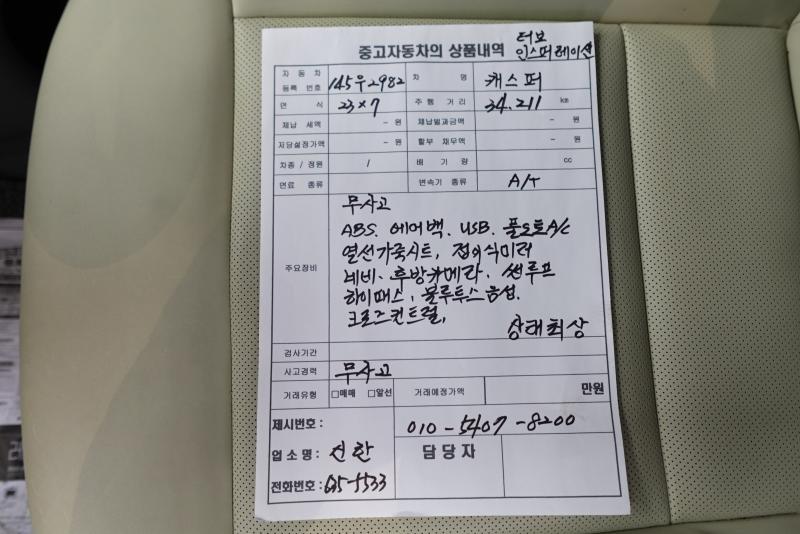 터보
중고자동차의 상품내역 인스퍼레이션
자동차 등록 번호 145우2982 차 명 캐스퍼
연 식 23x7 주행 거리 34.211 km
체납 세액 - 원 체납벌과금액 - 원
저당설정가액 - 원 할부 채무액 - 원
차종 / 정원 / 배 기 량 cc
연료 종류 변속기 종류 A/T
주요장비
무사고
ABS. 에어백. USB. 풀오토A/C
열선가죽시트, 접이식미러
네비. 후방카메라. 썬루프
하이패스, 블루투스음성.
크로즈컨트럴,
상태최상
검사기간
사고경력 무사고
거래유형 □매매 □알선 거래예정가액 만원
제시번호 : 010-5407-8200
업 소 명 : 신한 담 당 자
전화번호 : 635-5533